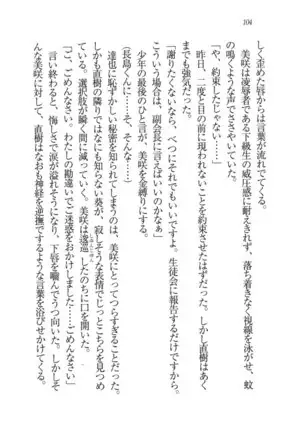 104
しく歪めた唇からは言葉が流れでてくる。
美咲は凌辱者である下級生の威圧感に耐えきれず、落ち着きなく視線を泳がせ、蚊
の鳴くような声でささやいていた。
「や、約束したじゃない……」
昨日、二度と目の前に現われないことを約束させたはずだった。しかし直樹はあく
までも強気だった。
「謝りたくないなら、べつにそれでもいいんですよ。生徒会に報告するだけですから。
こういう場合は、副会長に言えばいいのかなぁ」
少年の最後のひと言が、美咲を金縛りにする。
「長島くんに……そ、そんな……」
達也に恥ずかしい秘密を知られてしまうのは、美咲にとってつらすぎることだった。
しかも直樹の隣りではなにも知らない葵が、寂しそうな表情でじっとこちらを見つめ
ている。選択肢が瞬く間に減っていく。美咲は逡巡したのちに口を開いた。
「ご、ごめんなさい、わたしの勘違いでご迷惑をおかけしました……ごめんなさい」
言い終わると、悔しさで涙が溢れそうになり、下唇を噛んでうつ向いた。しかしそ
んな美咲に対して、直樹はなおも神経を逆撫でするような言葉を浴びせかけてくる。